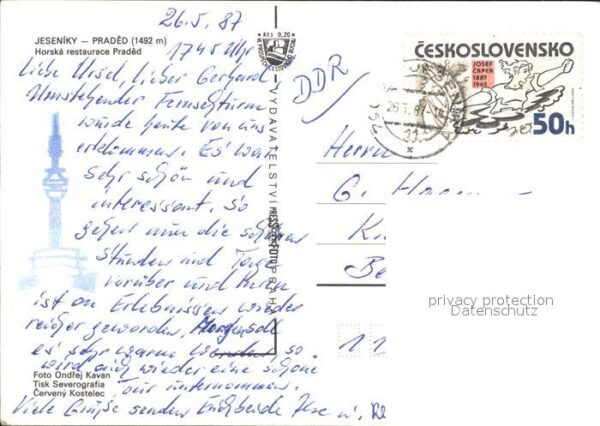 26.5.87
JESENÍKY — PRADĚD (1492 m)
Horská restaurace Praděd
1745 Uhr
Liebe Ursel, lieber Gerhard
Umstehender Fernsehturm
wurde heute von uns
erklommen. Es war
sehr schön und
interessant. So
gehen nun die schönen
Stunden und Tage
vorüber und
ist an Erlebnissen wieder
reicher geworden. Morgen soll
es sehr warm werden, so
wird auch wieder eine schöne
Tour unternommen.
Viele Grüße senden Euch beide
Foto Ondřej Kavan
Tisk Severografia
Červený Kostelec
Kčs 0,20
VYDAVATELSTVÍ PRESSFOTO PRAHA
DDR
ČESKOSLOVENSKO
JOSEF
ČAPEK
1887
1945
50h
Herrn
G.
K
Be
privacy protection
Datenschutz
11